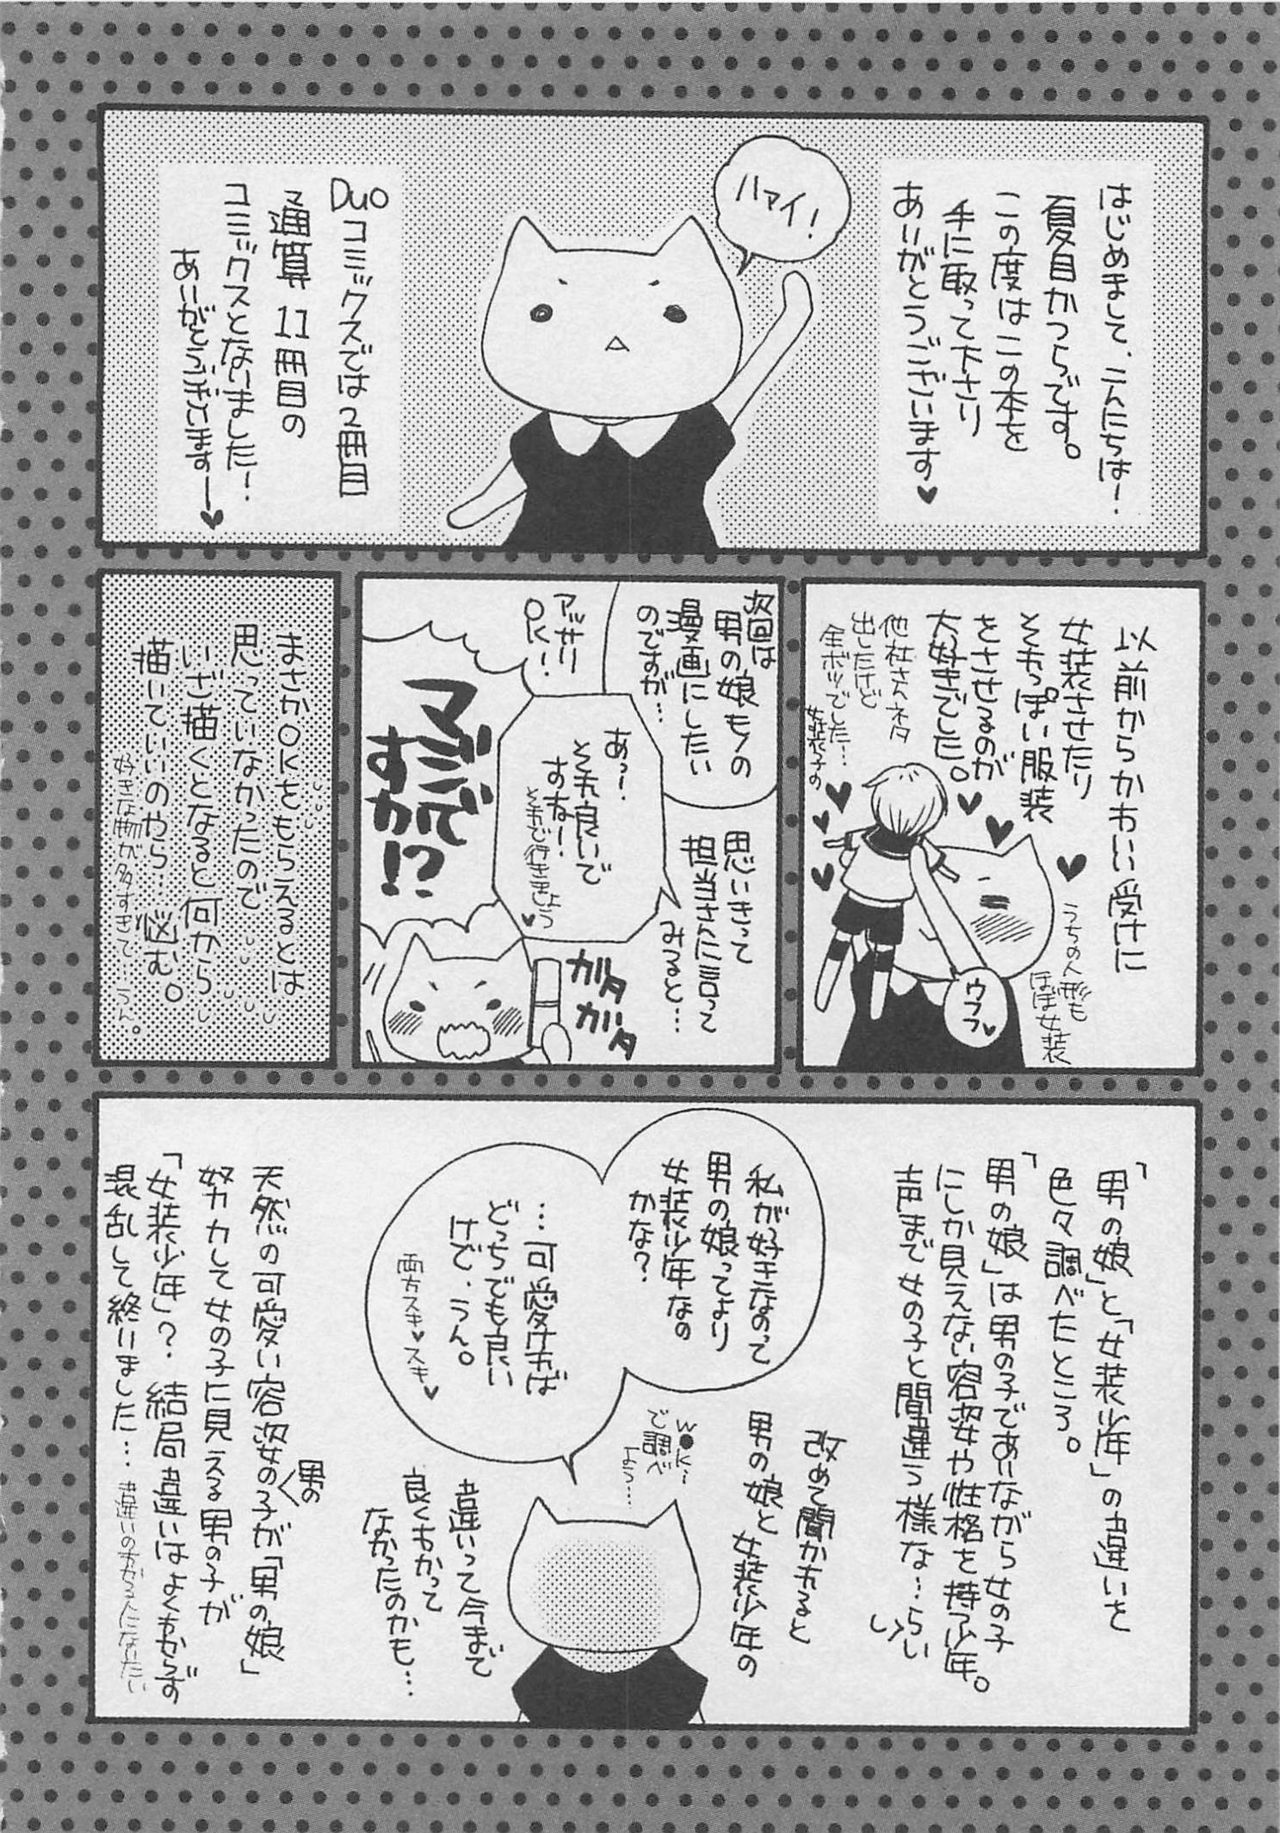 はじめまして、こんにちは!
夏目かつらです。
この度はこの本を
手に取って下さり
ありがとうございます♥
ハァイ!
Duoコミックスでは2冊目
通算11冊目の
コミックスとなりました!
ありがとうございますー♥
以前からかわいい受けに
女装させたり
それっぽい服装
をさせるのが
大好きでした。
他社さんネタ
出したけど
全ボツでした…
女装子の
うちの人形も
ほぼ女装
ウフ♥
次回は
男の娘もの
漫画にしたい
のですが…
思いきって
担当さんに言って
みると…
あっ!
それ良いで
すね!
それで行きましょう♥
アッサリ
OK!
マジで
すか!?
ガタ
ガタ
まさかOKをもらえるとは
思っていなかったので
いざ描くとなると何から
描いていいのやら…悩む。
好きな物が多すぎて…うん。
「男の娘」と「女装少年」の違いを
色々調べたところ。
「男の娘」は男の子でありながら女の子
にしか見えない容姿や性格を持つ少年。
声まで女の子と間違う様な…らしい
改めて聞かれると
男の娘と女装少年の
違いって今まで
良くわかって
なかったのかも…
私が好きなのって
男の娘ってより
女装少年なの
かな?
…可愛ければ
どっちでも良い
けど、うん。
両方スキ♥スキ♥
W●K…
で調べ
よう…
天然の可愛い容姿の男の子が「男の娘」
努力して女の子に見える男の子が
「女装少年」?結局違いはよくわからず
混乱して終りました…
違いのわかる人になりたい